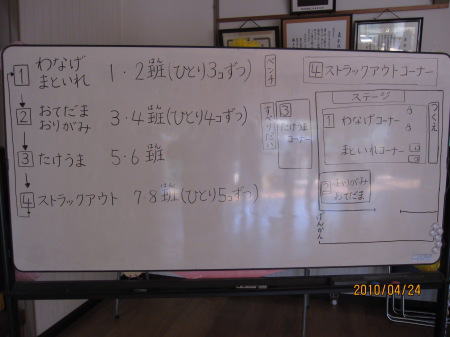 1 わなげ まといれ 1・2班(ひとり3コずつ)
2 おてだま おりがみ 3・4班(ひとり4コずつ)
3 たけうま 5・6班
4 ストラックアウト 7 8班(ひとり5コずつ)
ベンチ
すべりだい
3 たけうま コーナー
4 ストラックアウトコーナー
ステージ
つくえ
1 わなげコーナー
まといれコーナー
2 おりがみ
おてだま
げんかん
2010/04/24